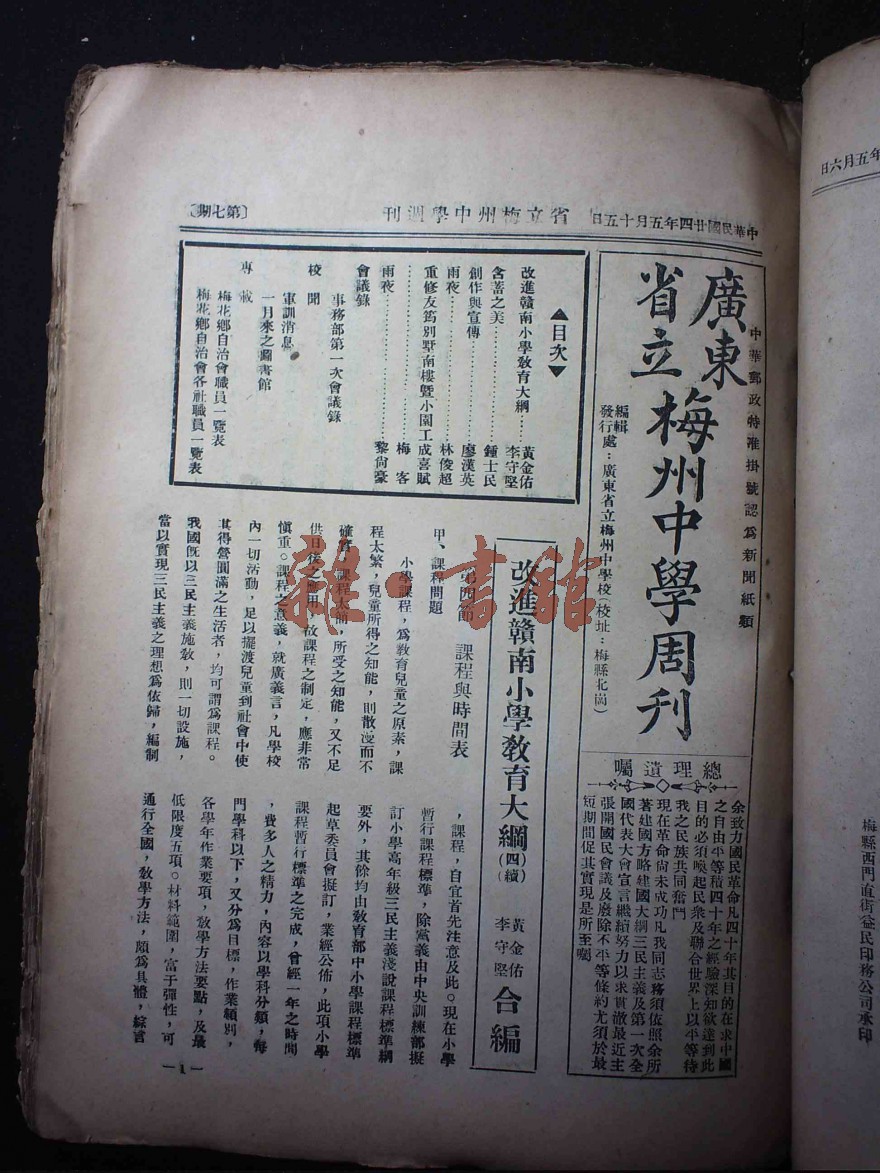 中華民國廿四年五月十五日
省立梅州中學週刊
〔第七期〕
中華郵政特准掛號認為新聞紙類
廣東
省立
梅州中學周刊
編輯
發行處：廣東省立梅州中學校（校址：梅縣北崗）
總理遺囑
余致力國民革命凡四十年其目的在求中國
之自由平等積四十年之經驗深知欲達到此
目的必須喚起民衆及聯合世界上以平等待
我之民族共同奮鬥
現在革命尚未成功凡我同志務須依照余所
著建國方略建國大綱三民主義及第一次全
國代表大會宣言繼續努力以求貫澈最近主
張開國民會議及廢除不平等條約尤須於最
短期間促其實現是所至囑
▲目次▼
改進贛南小學敎育大綱……黃金佑 李守堅
含蓄之美……鍾士民
創作與宣傳……廖漢英
雨夜……林俊超
重修友筠別墅南樓曁小園工成喜賦……梅客
雨夜……黎尙豪
會議錄
事務部第一次會議錄
校聞
軍訓消息
一月來之圖書館
專載
梅花鄉自治會職員一覽表
梅花鄉自治會各社職員一覽表
改進贛南小學敎育大綱（四續）
黃金佑
李守堅
合編
第四節 課程與時間表
甲、課程問題
小學課程，爲敎育兒童之原素，課
程太繁，兒童所得之知能，則散漫而不
確實，課程太簡，所受之知能，又不足
供日後之應用，故課程之制定，應非常
愼重。課程之意義，就廣義言，凡學校
內一切活動，足以擺渡兒童到社會中使
其得營圓滿之生活者，均可謂爲課程。
我國旣以三民主義施敎，則一切設施，
當以實現三民主義之理想爲依歸，編制
，課程，自宜首先注意及此。現在小學
暫行課程標準，除黨義由中央訓練部擬
訂小學高年級三民主義淺說課程標準綱
要外，其餘均由敎育部中小學課程標準
起草委員會擬訂，業經公佈，此項小學
課程暫行標準之完成，曾經一年之時間
，費多人之精力，內容以學科分類，每
門學科以下，又分爲目標，作業類別，
各學年作業要項，敎學方法要點，及最
低限度五項。材料範圍，富于彈性，可
通行全國，敎學方法，頗爲具體，綜言
—1—
年五月六日
梅縣西門直街益民印務公司承印
雜·書館